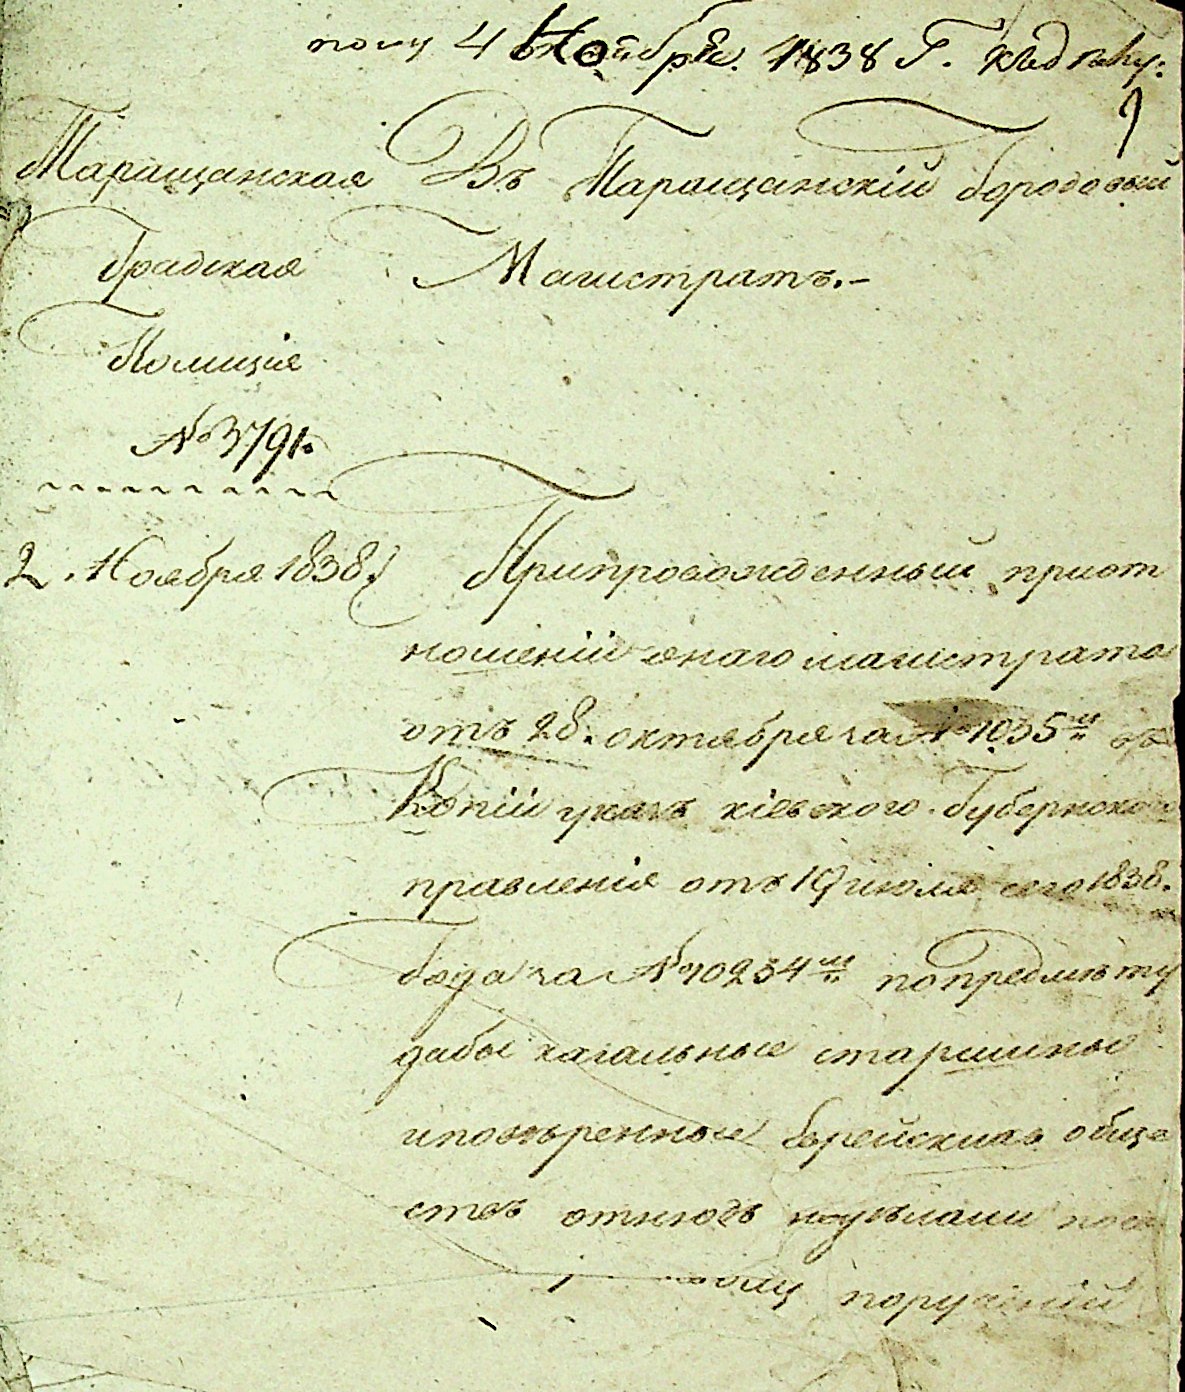 4 Ноября 1838 г. къ дѣлу:
Таращанская
Градская
Полиція
№ 3791.
2. Ноября 1838.
Въ Таращанскій Городовый
Магистратъ.-
Припровожденный приот
ношеніи онаго магистрата
отъ 28. октября за № 1035м въ
Копіи указъ кіевского Губернского
правленія отъ 19 июля сего 1838.
Года за № 10234м попредмѣту
дабы кагальные старшины
иповѣренные Еврейскихъ обще
ствъ отнюдъ
порученій